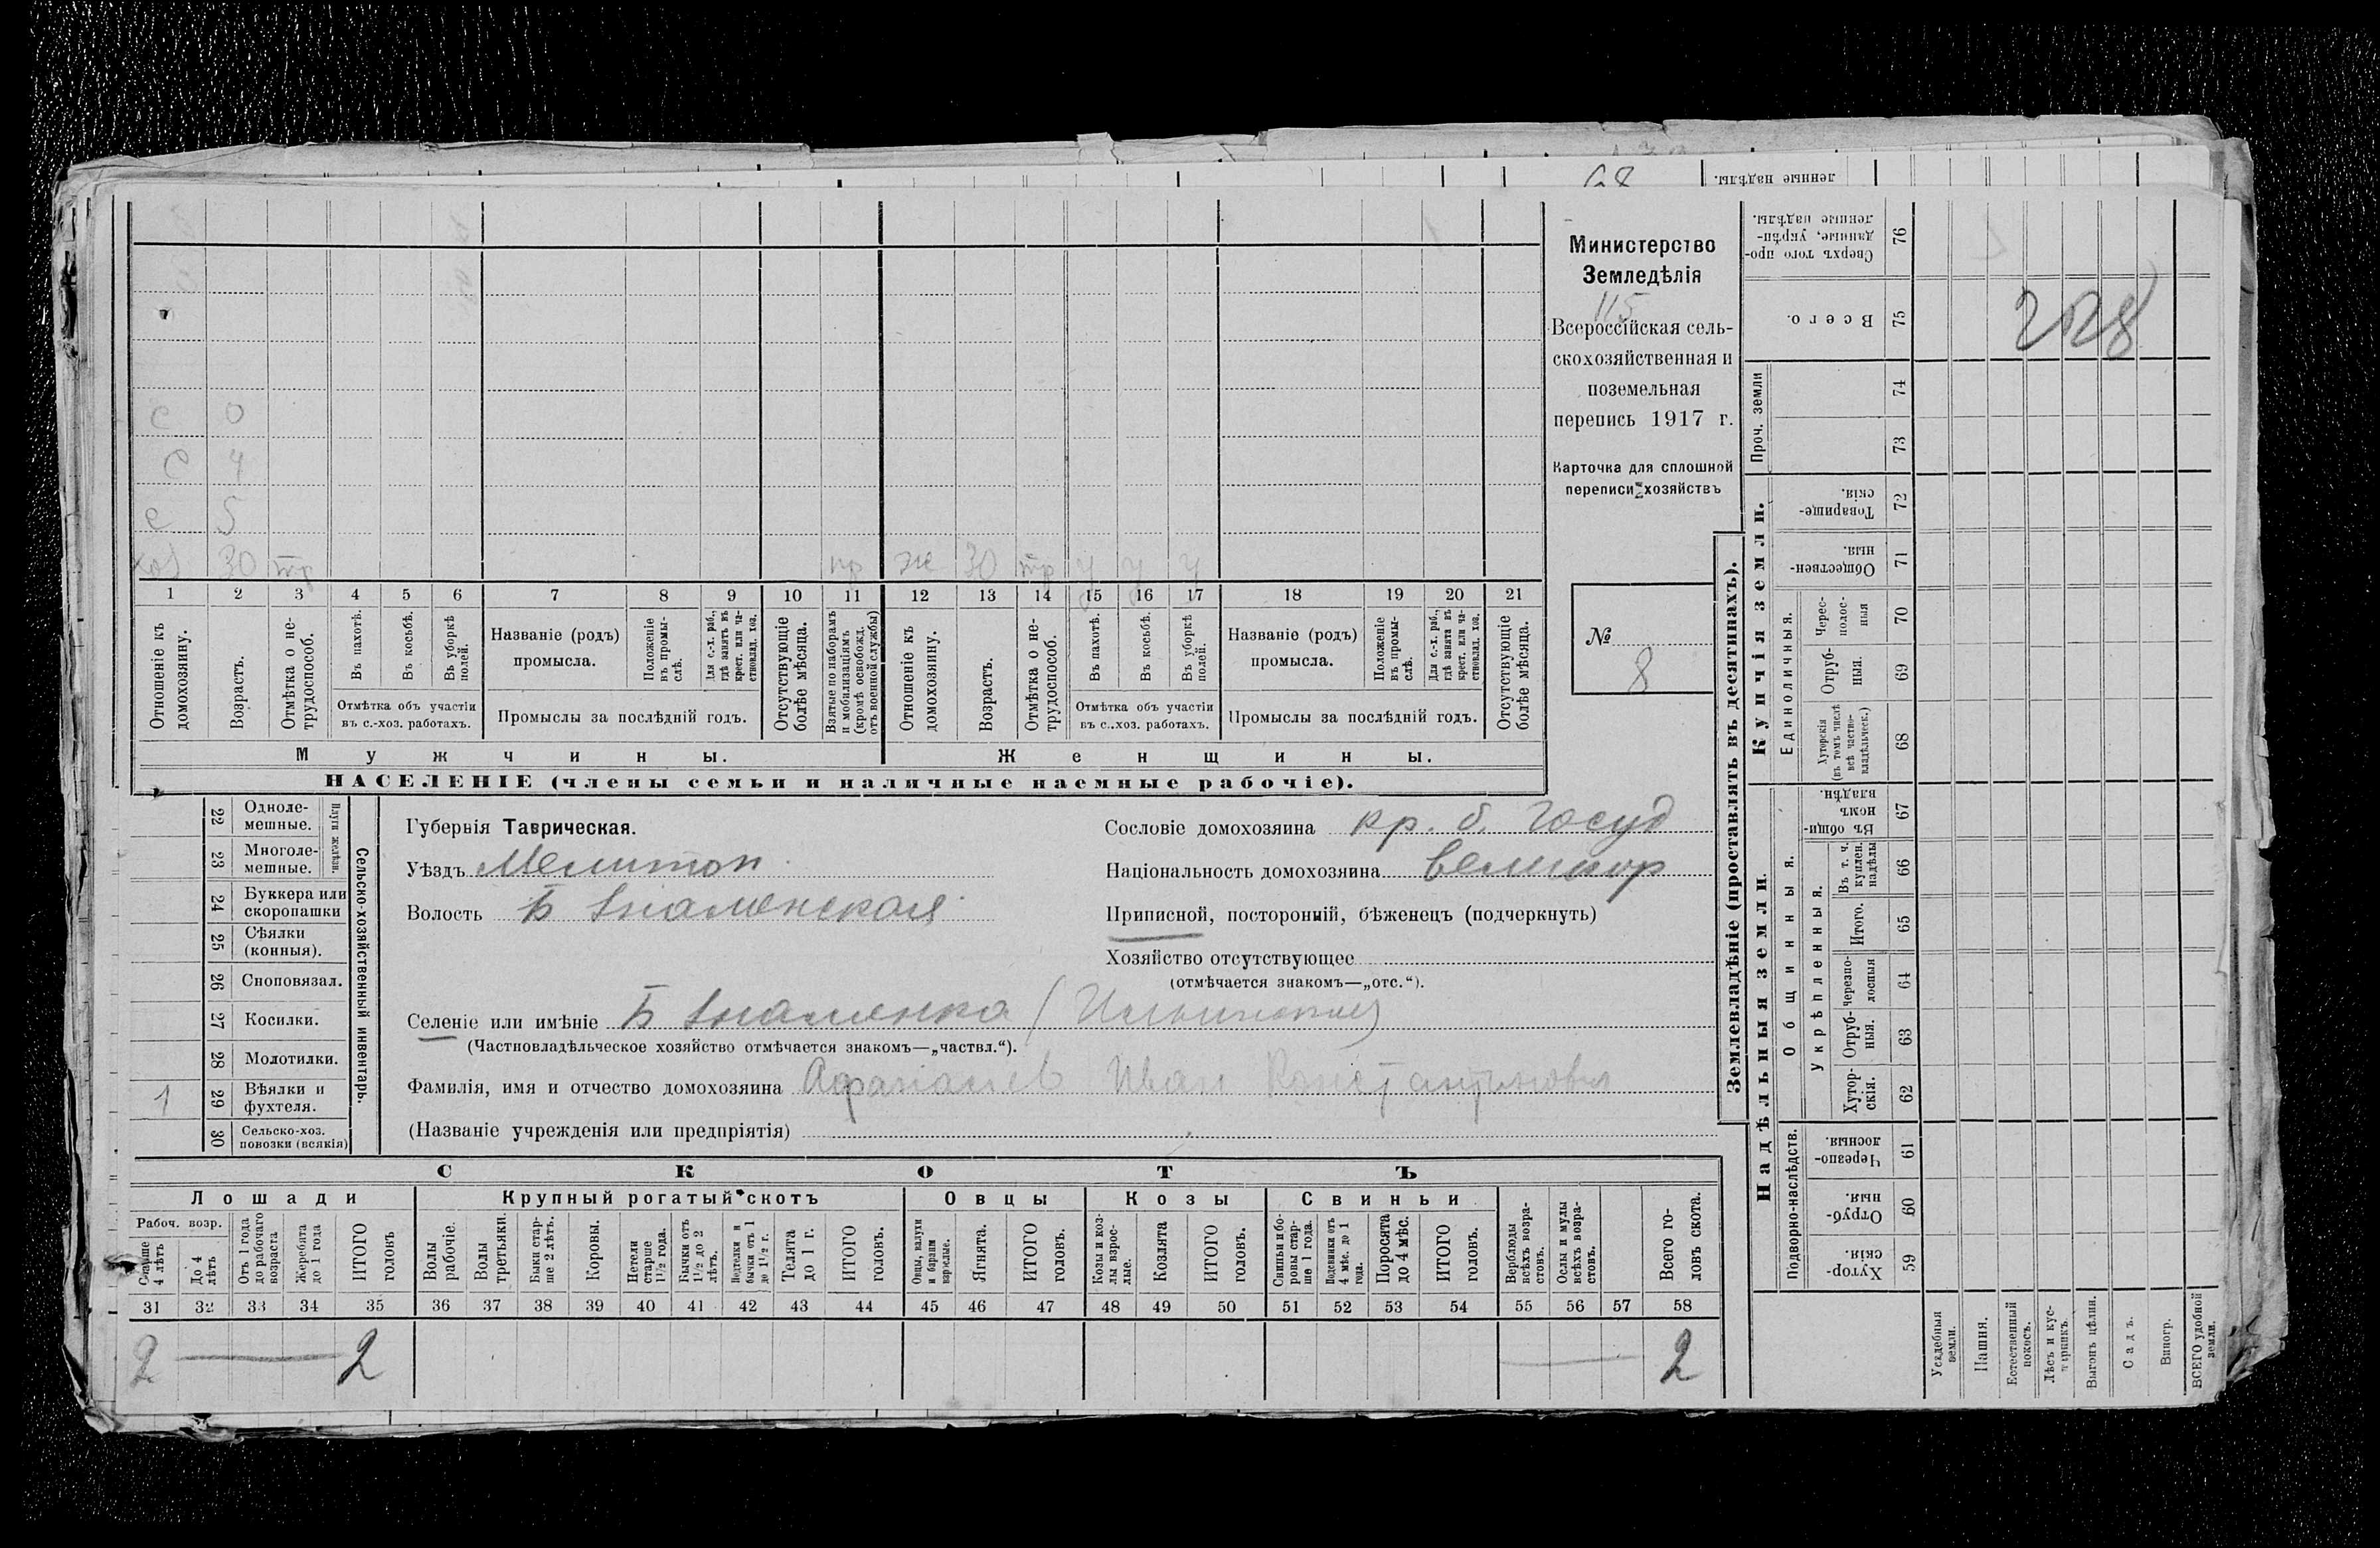 68
ленные надѣлы.
Министерство
Земледѣлія
115
Всероссійская сель-
скохозяйственная и
поземельная
перепись 1917 г.
Карточка для сплошной
переписи хозяйствъ
№
8
228
с 0
с 4
с 5
хоз 30 тр пр ж 30 тр у у у
1 2 3 4 5 6 7 8 9 10 11 12 13 14 15 16 17 18 19 20 21
Отношеніе къ домохозяину.
Возрастъ.
Отмѣтка о не-трудоспособ.
Въ пахотѣ.
Въ косьбѣ.
Въ уборкѣ полей.
Отмѣтка объ участіи
въ с.-хоз. работахъ.
Названіе (родъ)
промысла.
Положеніе въ промы-слѣ.
Для с.-х. раб., гдѣ занятъ въ крест. или ча-стновлад. хоз.
Промыслы за послѣдній годъ.
Отсутствующіе болѣе мѣсяца.
Взятые по наборамъ и мобилизаціямъ (кромѣ освобожд. отъ военной службы)
Отношеніе къ домохозяину.
Возрастъ.
Отмѣтка о не-трудоспособ.
Въ пахотѣ.
Въ косьбѣ.
Въ уборкѣ полей.
Отмѣтка объ участіи
въ с.-хоз. работахъ.
Названіе (родъ)
промысла.
Положеніе въ промы-слѣ.
Для с.-х. раб., гдѣ занята въ крест. или ча-стновлад. хоз.
Промыслы за послѣдній годъ.
Отсутствующіе болѣе мѣсяца.
Мужчины.
Женщины.
НАСЕЛЕНІЕ (члены семьи и наличные наемные рабочіе).
22 Одноле-мешные.
23 Многоле-мешные.
Плуги желѣзн.
24 Буккера или скоропашки
25 Сѣялки (конныя).
26 Сноповязал.
27 Косилки.
28 Молотилки.
1 29 Вѣялки и фухтеля.
30 Сельско-хоз. повозки (всякія)
Сельско-хозяйственный инвентарь.
Губернія Таврическая.
Уѣздъ Мелитоп.
Волость Б Знаменская
Сословіе домохозяина кр. б. госуд
Національность домохозяина великор
Приписной, посторонній, бѣженецъ (подчеркнуть)
Хозяйство отсутствующее
(отмѣчается знакомъ—„отс.“).
Селеніе или имѣніе Б Знаменка
(Частновладѣльческое хозяйство отмѣчается знакомъ—„частвл.“).
Фамилія, имя и отчество домохозяина Афанасьев Иван Константинович
(Названіе учрежденія или предпріятія)
СКОТЪ
Лошади
Рабоч. возр.
Свыше 4 лѣтъ
До 4 лѣтъ
Отъ 1 года до рабочаго возраста
Жеребята до 1 года
ИТОГО головъ
Крупный рогатый скотъ
Волы рабочіе.
Волы третьяки.
Быки стар-ше 2 лѣтъ.
Коровы.
Нетели старше 1½ года.
Бычки отъ 1½ до 2 лѣтъ.
Подтелки и бычки отъ 1 до 1½ г.
Телята до 1 г.
ИТОГО головъ.
Овцы
Овцы, валухи и бараны взрослые.
Ягнята.
ИТОГО головъ.
Козы
Козы и коз-лы взрос-лые.
Козлята
ИТОГО головъ.
Свиньи
Свиньи и бо-ровы стар-ше 1 года.
Подсвинки отъ 4 мѣс. до 1 года.
Поросята до 4 мѣс.
ИТОГО головъ.
Верблюды всѣхъ возра-стовъ.
Ослы и мулы всѣхъ возра-стовъ.
Всего го-ловъ скота.
31 32 33 34 35 36 37 38 39 40 41 42 43 44 45 46 47 48 49 50 51 52 53 54 55 56 57 58
2 2 2
Землевладѣніе (проставлять въ десятинахъ).
Купчія земли.
Надѣльныя земли.
Сверхъ того про-данные, укрѣп-ленные надѣлы. 76
Всего. 75
Проч. земли 74 73
Товарище-скія. 72
Обществен-ныя. 71
Единоличныя.
Черес-полос-ныя 70
Отруб-ныя. 69
Хуторскія (въ томъ числѣ всѣ частно-владѣльческ.) 68
Общинныя.
Въ общин-номъ владѣн. 67
Укрѣпленныя.
Въ т. ч. куплен. надѣлы 66
Итого. 65
Черезпо-лосныя 64
Отруб-ныя. 63
Хутор-скія. 62
Подворно-наслѣдств.
Черезпо-лосныя. 61
Отруб-ныя. 60
Хутор-скія. 59
Усадебныя земли.
Пашня.
Естественный покосъ.
Лѣсъ и кус-тарникъ.
Выгонъ цѣлин.
Садъ.
Виногр.
ВСЕГО удобной земли.